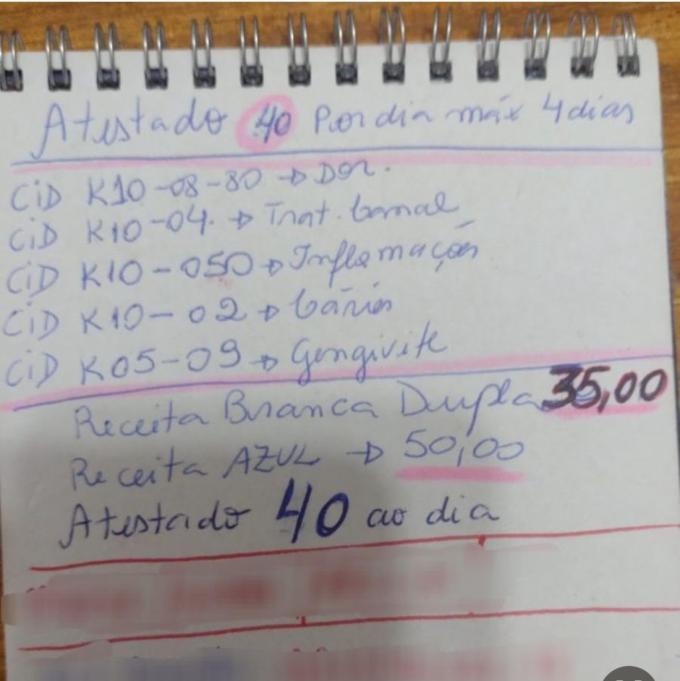 Atestado 40 Por dia máx 4 dias
CiD K10-08-80 → Dor.
CiD K10-04. → Trat. Canal
CiD K10-050 → Inflamação
CiD K10-02 → Cáries
CiD K05-09 → Gengivite
Receita Branca Dupla 35,00
Receita AZUL → 50,00
Atestado 40 ao dia